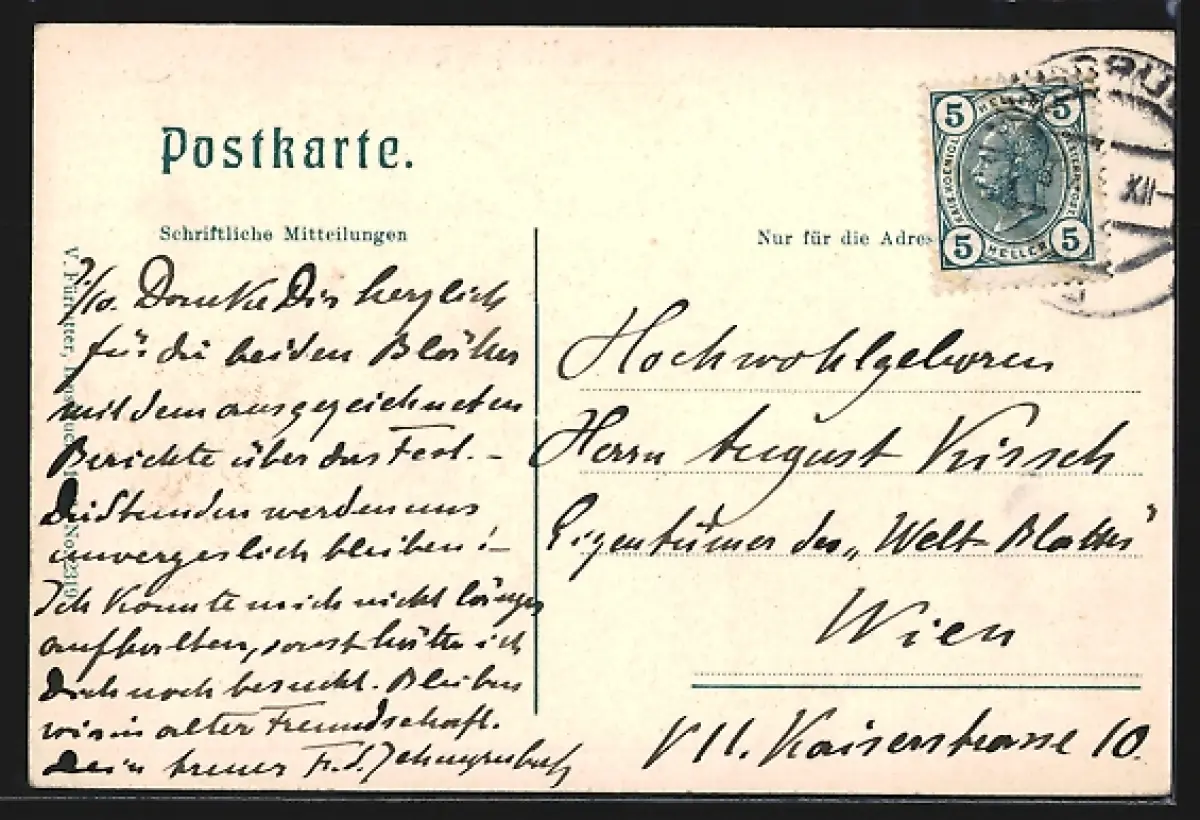 Postkarte.
Schriftliche Mitteilungen
Nur für die Adres
5 HELLER 5
KAIS. KOENIGL. OESTERR. POST
5 HELLER 5
XII
V. Fürrutter, No. 2319
7/10. Danke Dir herzlich
für die beiden Blätter
mit dem ausgezeichneten
Berichte über das Fest. –
Die Stunden werden uns
unvergeslich bleiben! –
Ich konnte mich nicht länger
aufhalten, sonst hätte ich
Dich noch besucht. Bleiben
wir in alter Freundschaft.
Dein treuer F. d.
Hochwohlgeboren
Herrn August Kirsch
Eigentümer des „Welt Blattes"
Wien
VII. Kaiserstrasse 10.